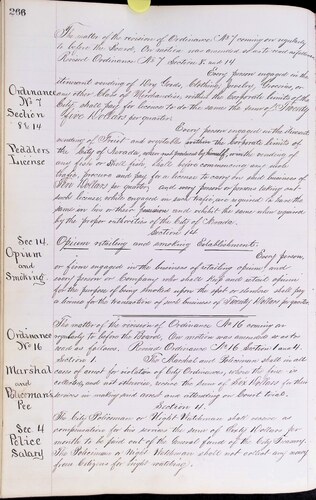 266
The matter of the revision of Ordinance No 7 coming on regularly
to before the Board. On motion was amended
Revised Ordinance No 7 Section 8 and 14
Every person engaged in the
itinerant vending of Dry Goods, Clothing, Jewelry, Groceries, or
any other Class of Merchandise, within the corporate limits of the
City, shall pay for license to do the same the sum of Twenty
five Dollars per quarter.
Every person engaged in the itinerant
vending of Fruit and vegetables within the corporate limits of
the City of Nevada, when not produced by himself, or in the vending of
any fish or Shell fish, shall before commencing any such
traffic, procure and pay for a license to carry on said business of
Five Dollars per quarter, and every person or persons taking out
such license while engaged in such traffic, are required to have the
same on her or their person and exhibit the same when required
by the proper authorities of the City of Nevada.
Section 14
Opium retailing and smoking Establishments.
Every person,
or firm engaged in the business of retailing opium, and
every person or Company who shall keep and retail opium
for the purpose of being smoked upon the spot or otherwise shall pay
a license for the transaction of such business of Twenty Dollars per quarter
The matter of the revision of Ordinance No 16 coming on
regularly to before the Board, On motion was amended as
follows. Revised Ordinance No 16, Section 1 and 4.
Section 1. The Marshal and Policeman shall in all
cases of arrest for violation of City Ordinances, when the fine is
collected, and not otherwise, receive the sum of Six Dollars for their
services in making said arrest and attending on Court trial.
Section 4.
The City Policeman or Night Watchman shall receive as
compensation for his services the sum of Forty Dollars per
month to be paid out of the General fund of the City Treasury.
The Policeman or Night Watchman shall not collect any money
from Citizens for night watching.
Ordinance
No 7
Section
8 & 14
Peddlers
License
Sec 14.
Opium
and
Smoking
Ordinance
No 16
Marshal
and
Policeman's
Fee
Sec 4
Police
Salary